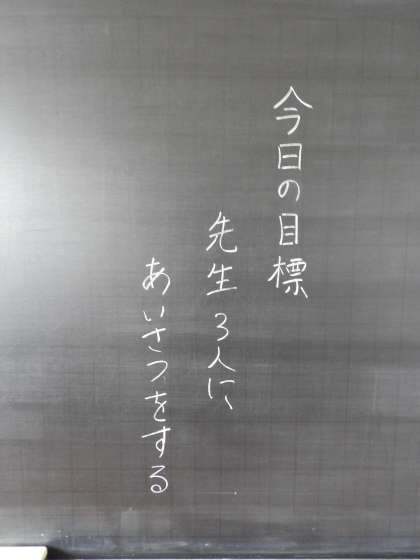 今日の目標
先生3人に、
あいさつをする